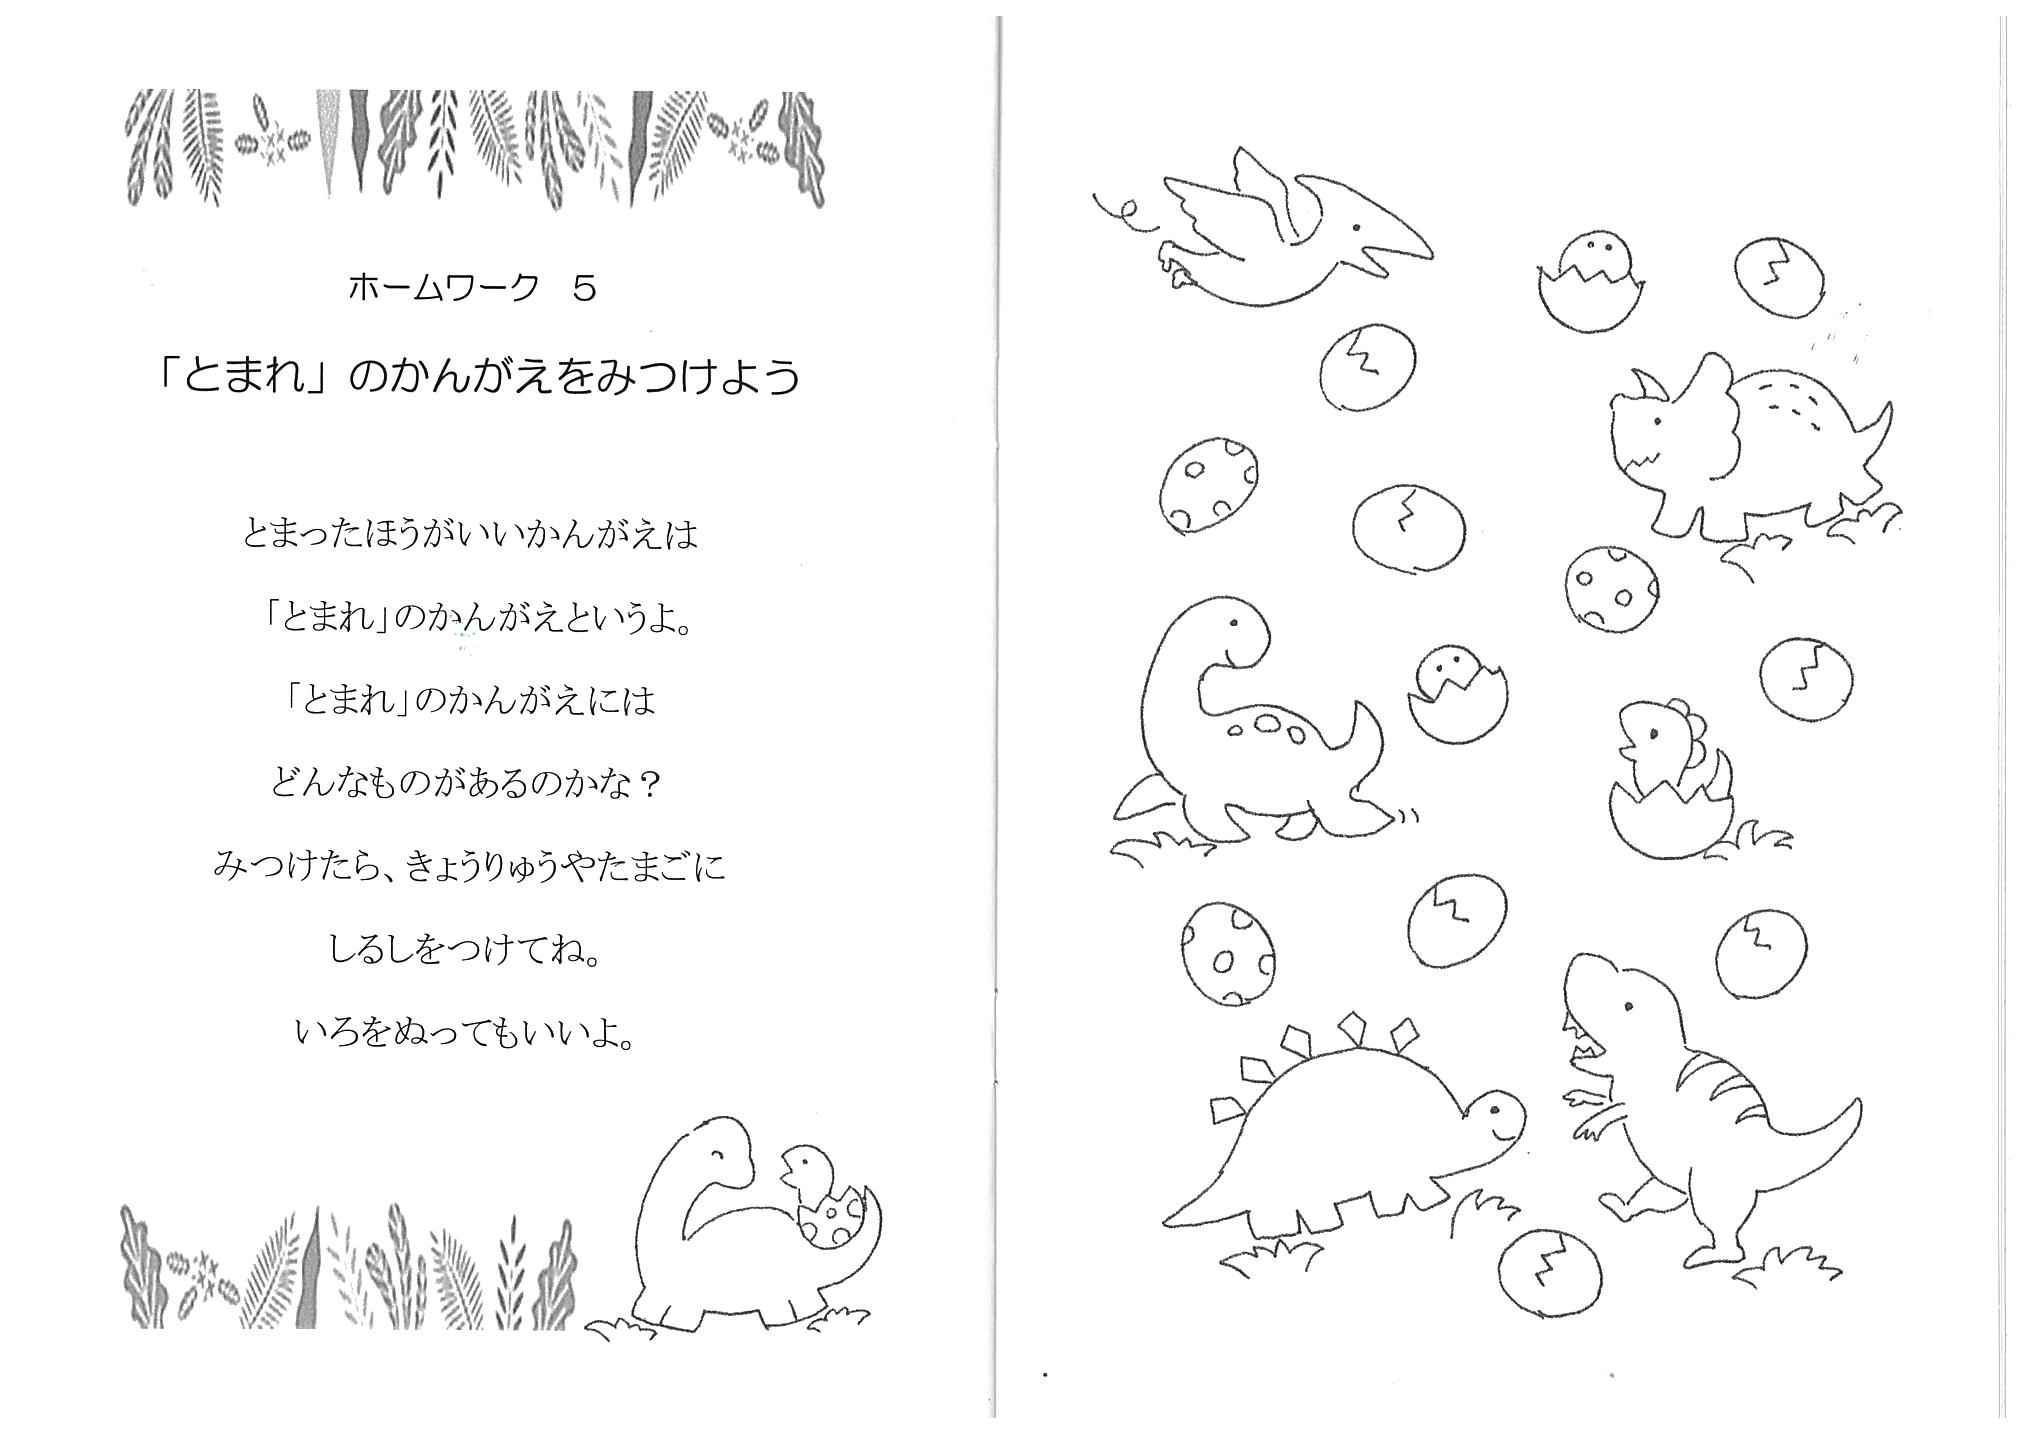 ホームワーク　５
「とまれ」のかんがえをみつけよう
とまったほうがいいかんがえは
「とまれ」のかんがえというよ。
「とまれ」のかんがえには
どんなものがあるのかな？
みつけたら、きょうりゅうやたまごに
しるしをつけてね。
いろをぬってもいいよ。